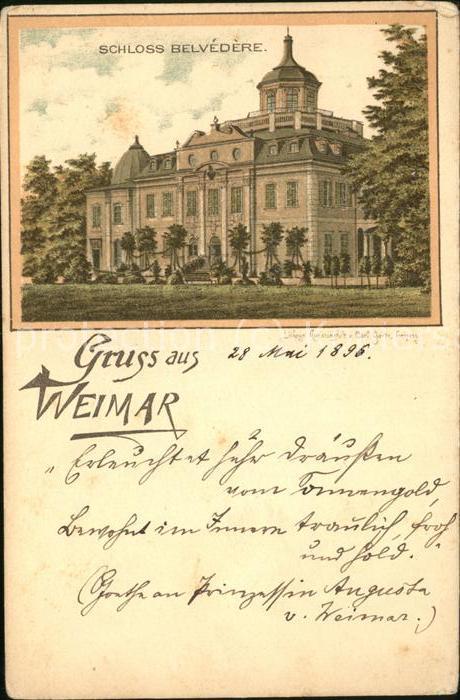 SCHLOSS BELVÉDERE.
Gruss aus
WEIMAR
28 Mai 1896.
"Erleuchtet
draußen
vom Sonnengold,
Bewohnt im Innern traulich, froh
und hold."
(Goethe an Prinzessin Augusta
v. Weimar.)